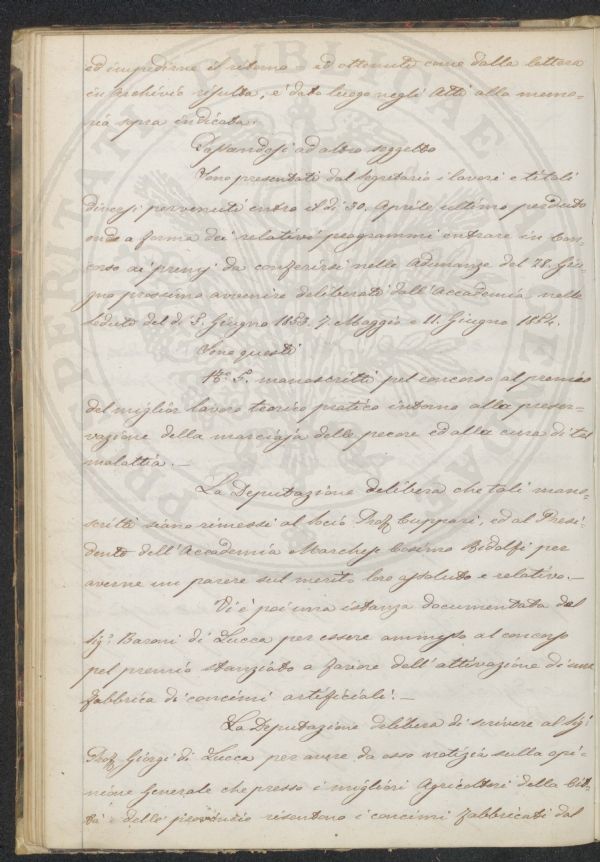 ed impedirne il ritorno ed ottenuti come dalla lettera
in Archivio risulta, è dato luogo negli Atti alla memo-
ria sopra indicata.
Passandosi ad altro soggetto
Sono presentati dal Segretario i lavori e titoli
diversi pervenuti entro il dì 30. Aprile ultimo perduto
onde a forma dei relativi programmi entrare in Con-
corso ai premj da conferirsi nelle Adunanze del 28. Giu-
gno prossimo avvenire deliberati dall'Accademia nelle
sedute del dì 5. Giugno 1853. 7. Maggio e 11. Giugno 1854.
Sono questi
N.° 5. manoscritti pel concorso al premio
del miglior lavoro teorico pratico intorno alla preser-
vazione della marciaja delle pecore ed alla cura di tal
malattia. —
La Deputazione delibera che tali mano-
scritti siano rimessi al socio Prof. Cuppari, ed al Presi-
dente dell'Accademia Marchese Cosimo Ridolfi per
averne un parere sul merito loro assoluto e relativo. —
Vi è poi una istanza documentata del
Sig.r Baroni di Lucca per essere ammesso al concorso
pel premio stanziato a favore dell'attivazione di una
fabbrica di concimi artificiali. —
La Deputazione delibera di scrivere al Sig.r
Prof. Giorgi di Lucca per avere da esso notizia sulla opi-
nione generale che presso i migliori Agricoltori della Cit-
tà e delle provincie risentono i concimi fabbricati dal
PROSPERITATI PUBLICAE AUGENDAE